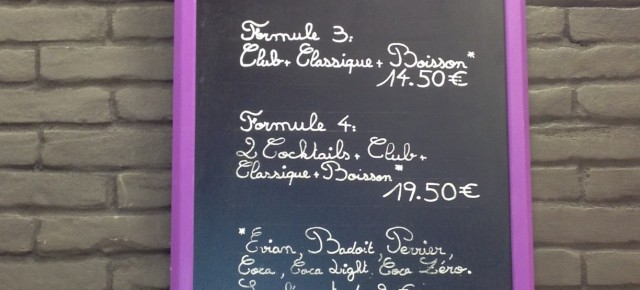 Formule 3:
Club + Classique + Boisson*
14.50€
Formule 4:
2 Cocktails + Club +
Classique + Boisson*
19.50€
*Evian, Badoit, Perrier,
Coca, Coca Light, Coca Zéro.